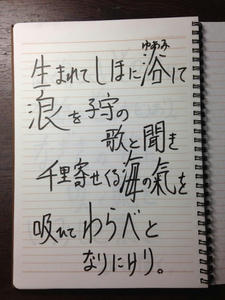 生まれてしほに浴して
浪を子守の
歌と聞き
千里寄せくる海の氣を
吸ひてわらべと
なりにけり。